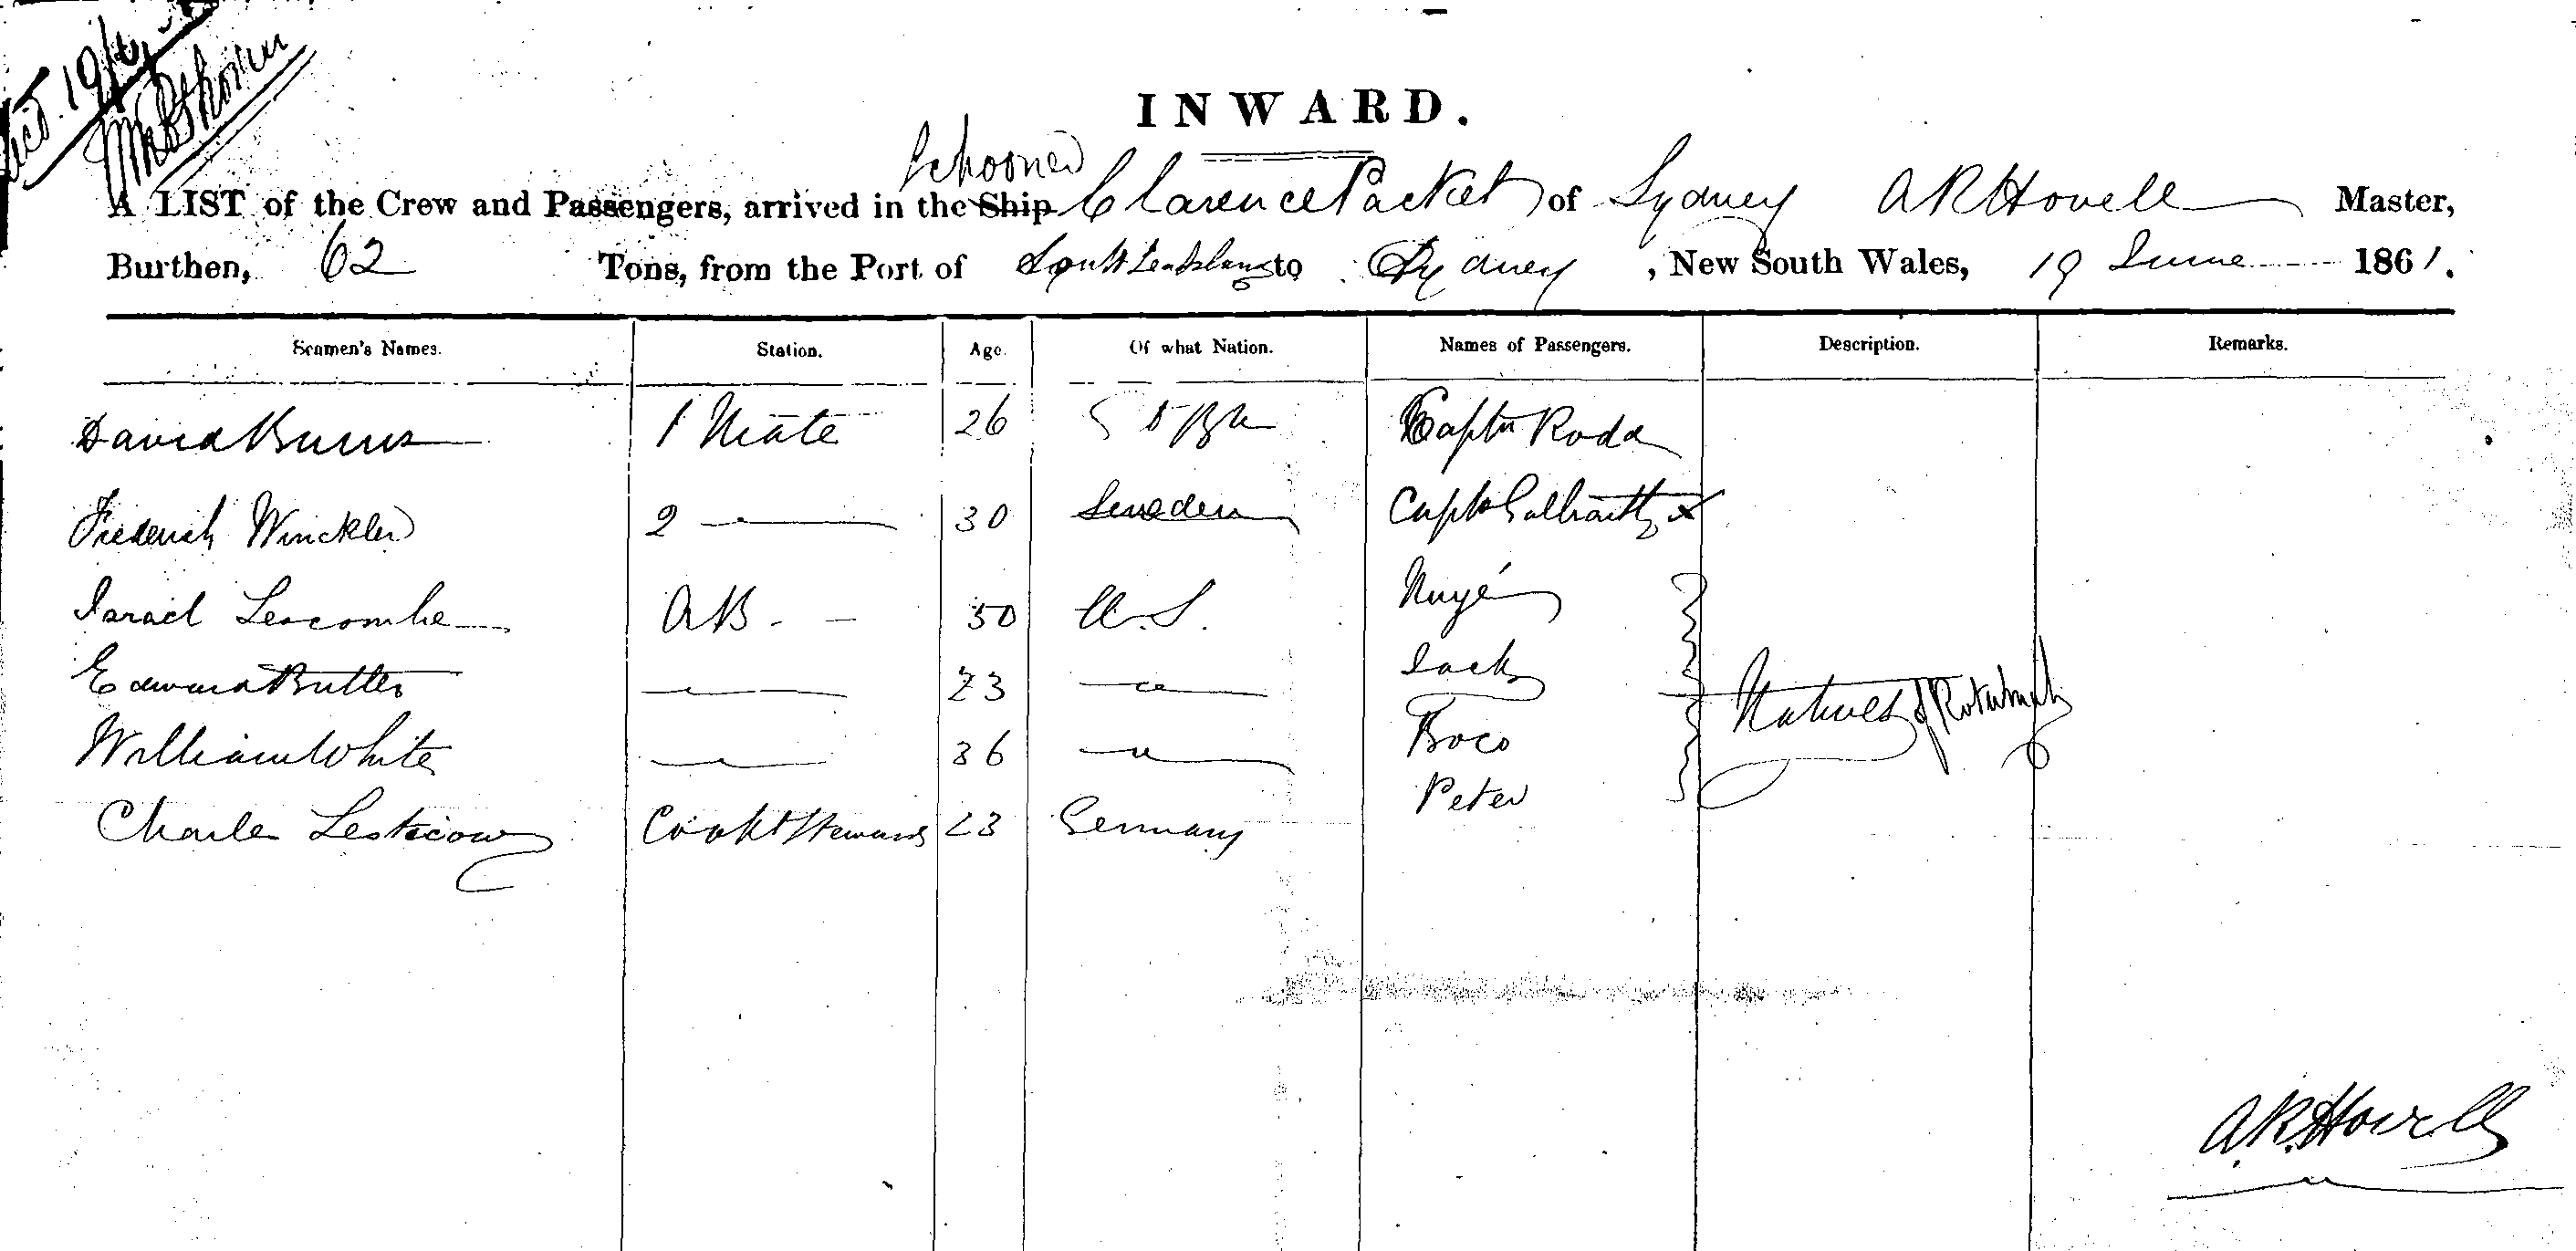 INWARD.
Schooner
A LIST of the Crew and Passengers, arrived in the Ship Clarence Packet of Sydney A R Howell Master,
Burthen, 62 Tons, from the Port of South Sea Islands to Sydney, New South Wales, 19 June 1861.
Seamen's Names. Station. Age. Of what Nation. Names of Passengers. Description. Remarks.
David Burns 1 Mate 26 Captn Rodd
Frederick Winckler 2 — " — 30 Sweden Capt Galbraith x
Israel Lescombe AB - - 50 U.S.
Edward Butler — " — 23 — " — Jack Natives of
William White — " — 36 — " — Boco
Peter
Charles Cook & Steward 23 Germany
A.R. Howell